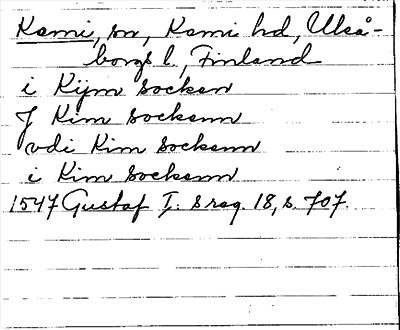 Kemi, sn, Kemi hd, Uleå-
borgs l., Finland
i Kijm Socken
J Kim Sockenn
vdi Kim Sockenn
i Kim Sockenn
1547 Gustaf I:s reg. 18, s. 707.